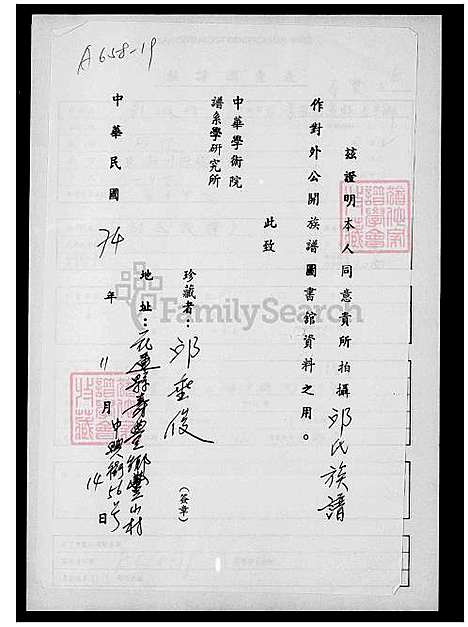 A658-19
茲證明本人同意貴所拍攝邱氏族譜
作對外公開族譜圖書館資料之用。
此致
中華學術院
譜系學研究所
珍藏者：邱垂俊(簽章)
地址：花蓮縣壽豐鄉豐山村
中興街56号
中華民國74年11月14日
FamilySearch